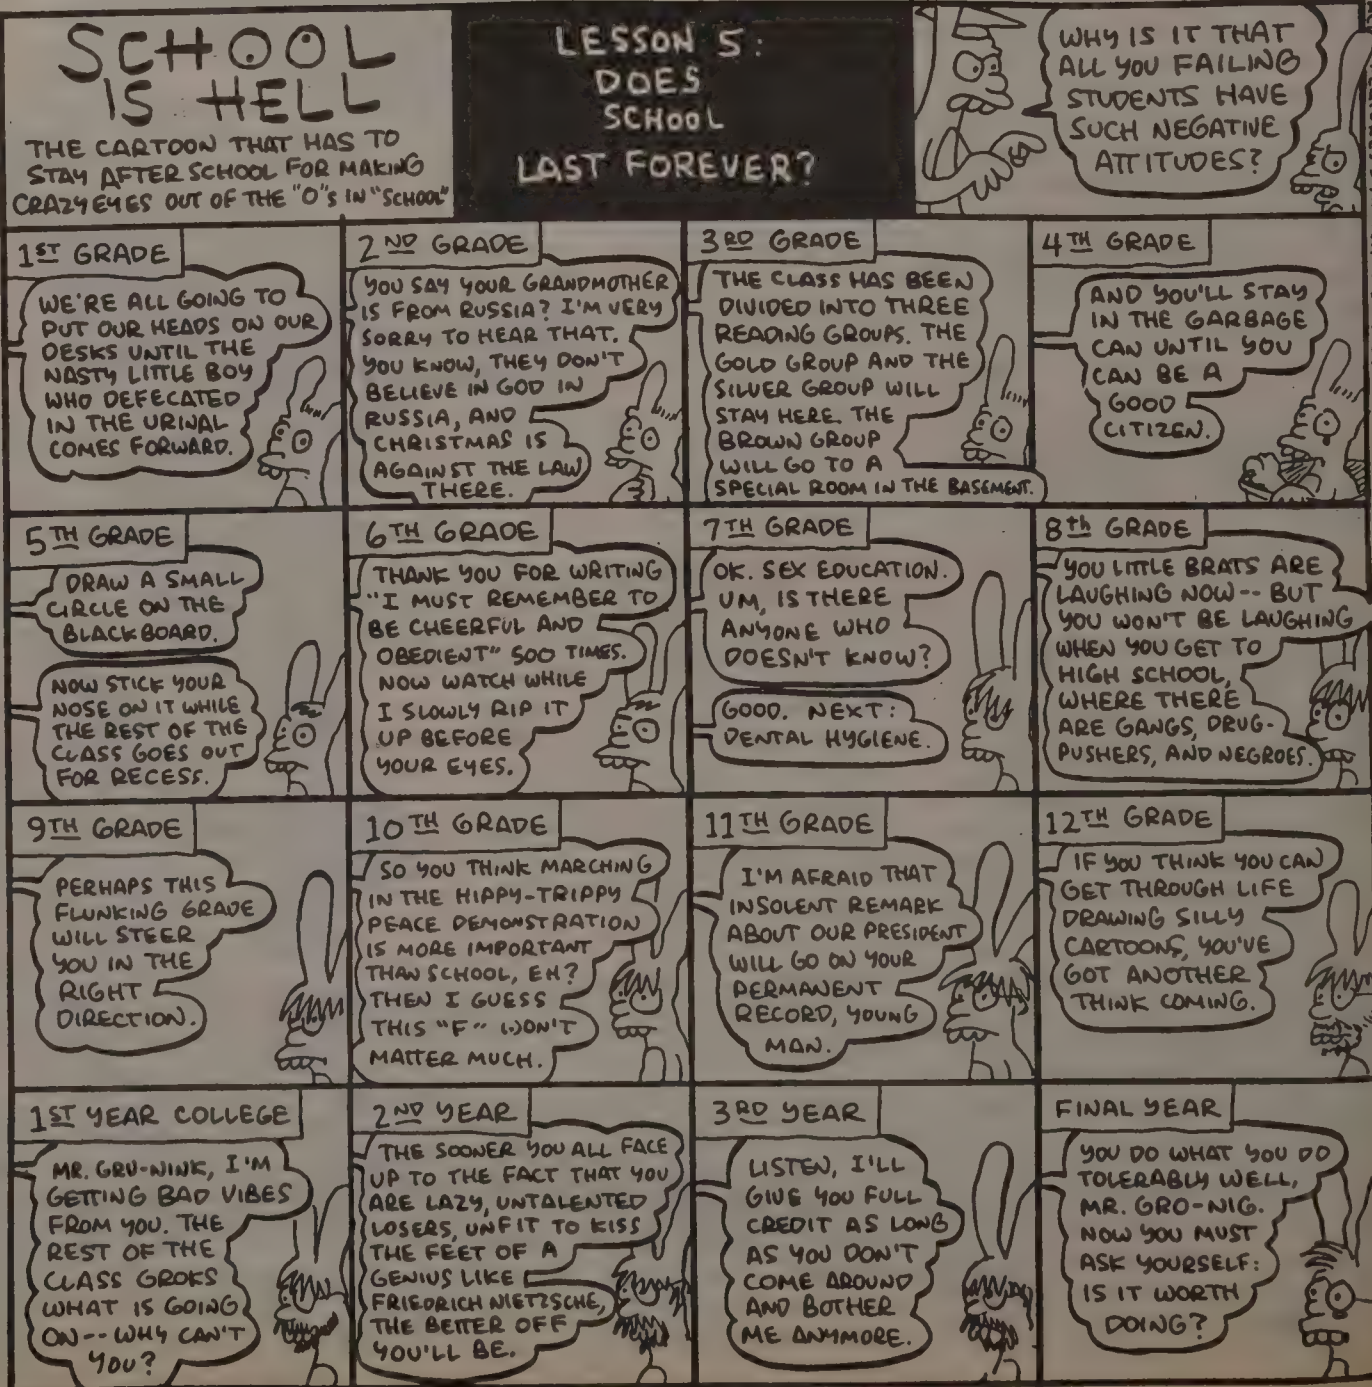 SCHOOL
IS HELL
THE CARTOON THAT HAS TO
STAY AFTER SCHOOL FOR MAKING
CRAZY EYES OUT OF THE "O"S IN "SCHOOL"
LESSON 5:
DOES
SCHOOL
LAST FOREVER?
WHY IS IT THAT
ALL YOU FAILING
STUDENTS HAVE
SUCH NEGATIVE
ATTITUDES?
1ST GRADE
WE'RE ALL GOING TO
PUT OUR HEADS ON OUR
DESKS UNTIL THE
NASTY LITTLE BOY
WHO DEFECATED
IN THE URINAL
COMES FORWARD.
2ND GRADE
YOU SAY YOUR GRANDMOTHER
IS FROM RUSSIA? I'M VERY
SORRY TO HEAR THAT.
YOU KNOW, THEY DON'T
BELIEVE IN GOD IN
RUSSIA, AND
CHRISTMAS IS
AGAINST THE LAW
THERE.
3RD GRADE
THE CLASS HAS BEEN
DIVIDED INTO THREE
READING GROUPS. THE
GOLD GROUP AND THE
SILVER GROUP WILL
STAY HERE. THE
BROWN GROUP
WILL GO TO A
SPECIAL ROOM IN THE BASEMENT.
4TH GRADE
AND YOU'LL STAY
IN THE GARBAGE
CAN UNTIL YOU
CAN BE A
GOOD
CITIZEN.
5TH GRADE
DRAW A SMALL
CIRCLE ON THE
BLACKBOARD.
NOW STICK YOUR
NOSE ON IT WHILE
THE REST OF THE
CLASS GOES OUT
FOR RECESS.
6TH GRADE
THANK YOU FOR WRITING
"I MUST REMEMBER TO
BE CHEERFUL AND
OBEDIENT" 500 TIMES.
NOW WATCH WHILE
I SLOWLY RIP IT
UP BEFORE
YOUR EYES.
7TH GRADE
OK. SEX EDUCATION.
UM, IS THERE
ANYONE WHO
DOESN'T KNOW?
GOOD. NEXT:
DENTAL HYGIENE.
8th GRADE
YOU LITTLE BRATS ARE
LAUGHING NOW -- BUT
YOU WON'T BE LAUGHING
WHEN YOU GET TO
HIGH SCHOOL,
WHERE THERE
ARE GANGS, DRUG-
PUSHERS, AND NEGROES.
9TH GRADE
PERHAPS THIS
FLUNKING GRADE
WILL STEER
YOU IN THE
RIGHT
DIRECTION.
10TH GRADE
SO YOU THINK MARCHING
IN THE HIPPY-TRIPPY
PEACE DEMONSTRATION
IS MORE IMPORTANT
THAN SCHOOL, EH?
THEN I GUESS
THIS "F" WON'T
MATTER MUCH.
11TH GRADE
I'M AFRAID THAT
INSOLENT REMARK
ABOUT OUR PRESIDENT
WILL GO ON YOUR
PERMANENT
RECORD, YOUNG
MAN.
12TH GRADE
IF YOU THINK YOU CAN
GET THROUGH LIFE
DRAWING SILLY
CARTOONS, YOU'VE
GOT ANOTHER
THINK COMING.
1ST YEAR COLLEGE
MR. GRU-NINK, I'M
GETTING BAD VIBES
FROM YOU. THE
REST OF THE
CLASS GROKS
WHAT IS GOING
ON -- WHY CAN'T
YOU?
2ND YEAR
THE SOONER YOU ALL FACE
UP TO THE FACT THAT YOU
ARE LAZY, UNTALENTED
LOSERS, UNFIT TO KISS
THE FEET OF A
GENIUS LIKE
FRIEDRICH NIETZSCHE,
THE BETTER OFF
YOU'LL BE.
3RD YEAR
LISTEN, I'LL
GIVE YOU FULL
CREDIT AS LONG
AS YOU DON'T
COME AROUND
AND BOTHER
ME ANYMORE.
FINAL YEAR
YOU DO WHAT YOU DO
TOLERABLY WELL,
MR. GRO-NIG.
NOW YOU MUST
ASK YOURSELF:
IS IT WORTH
DOING?